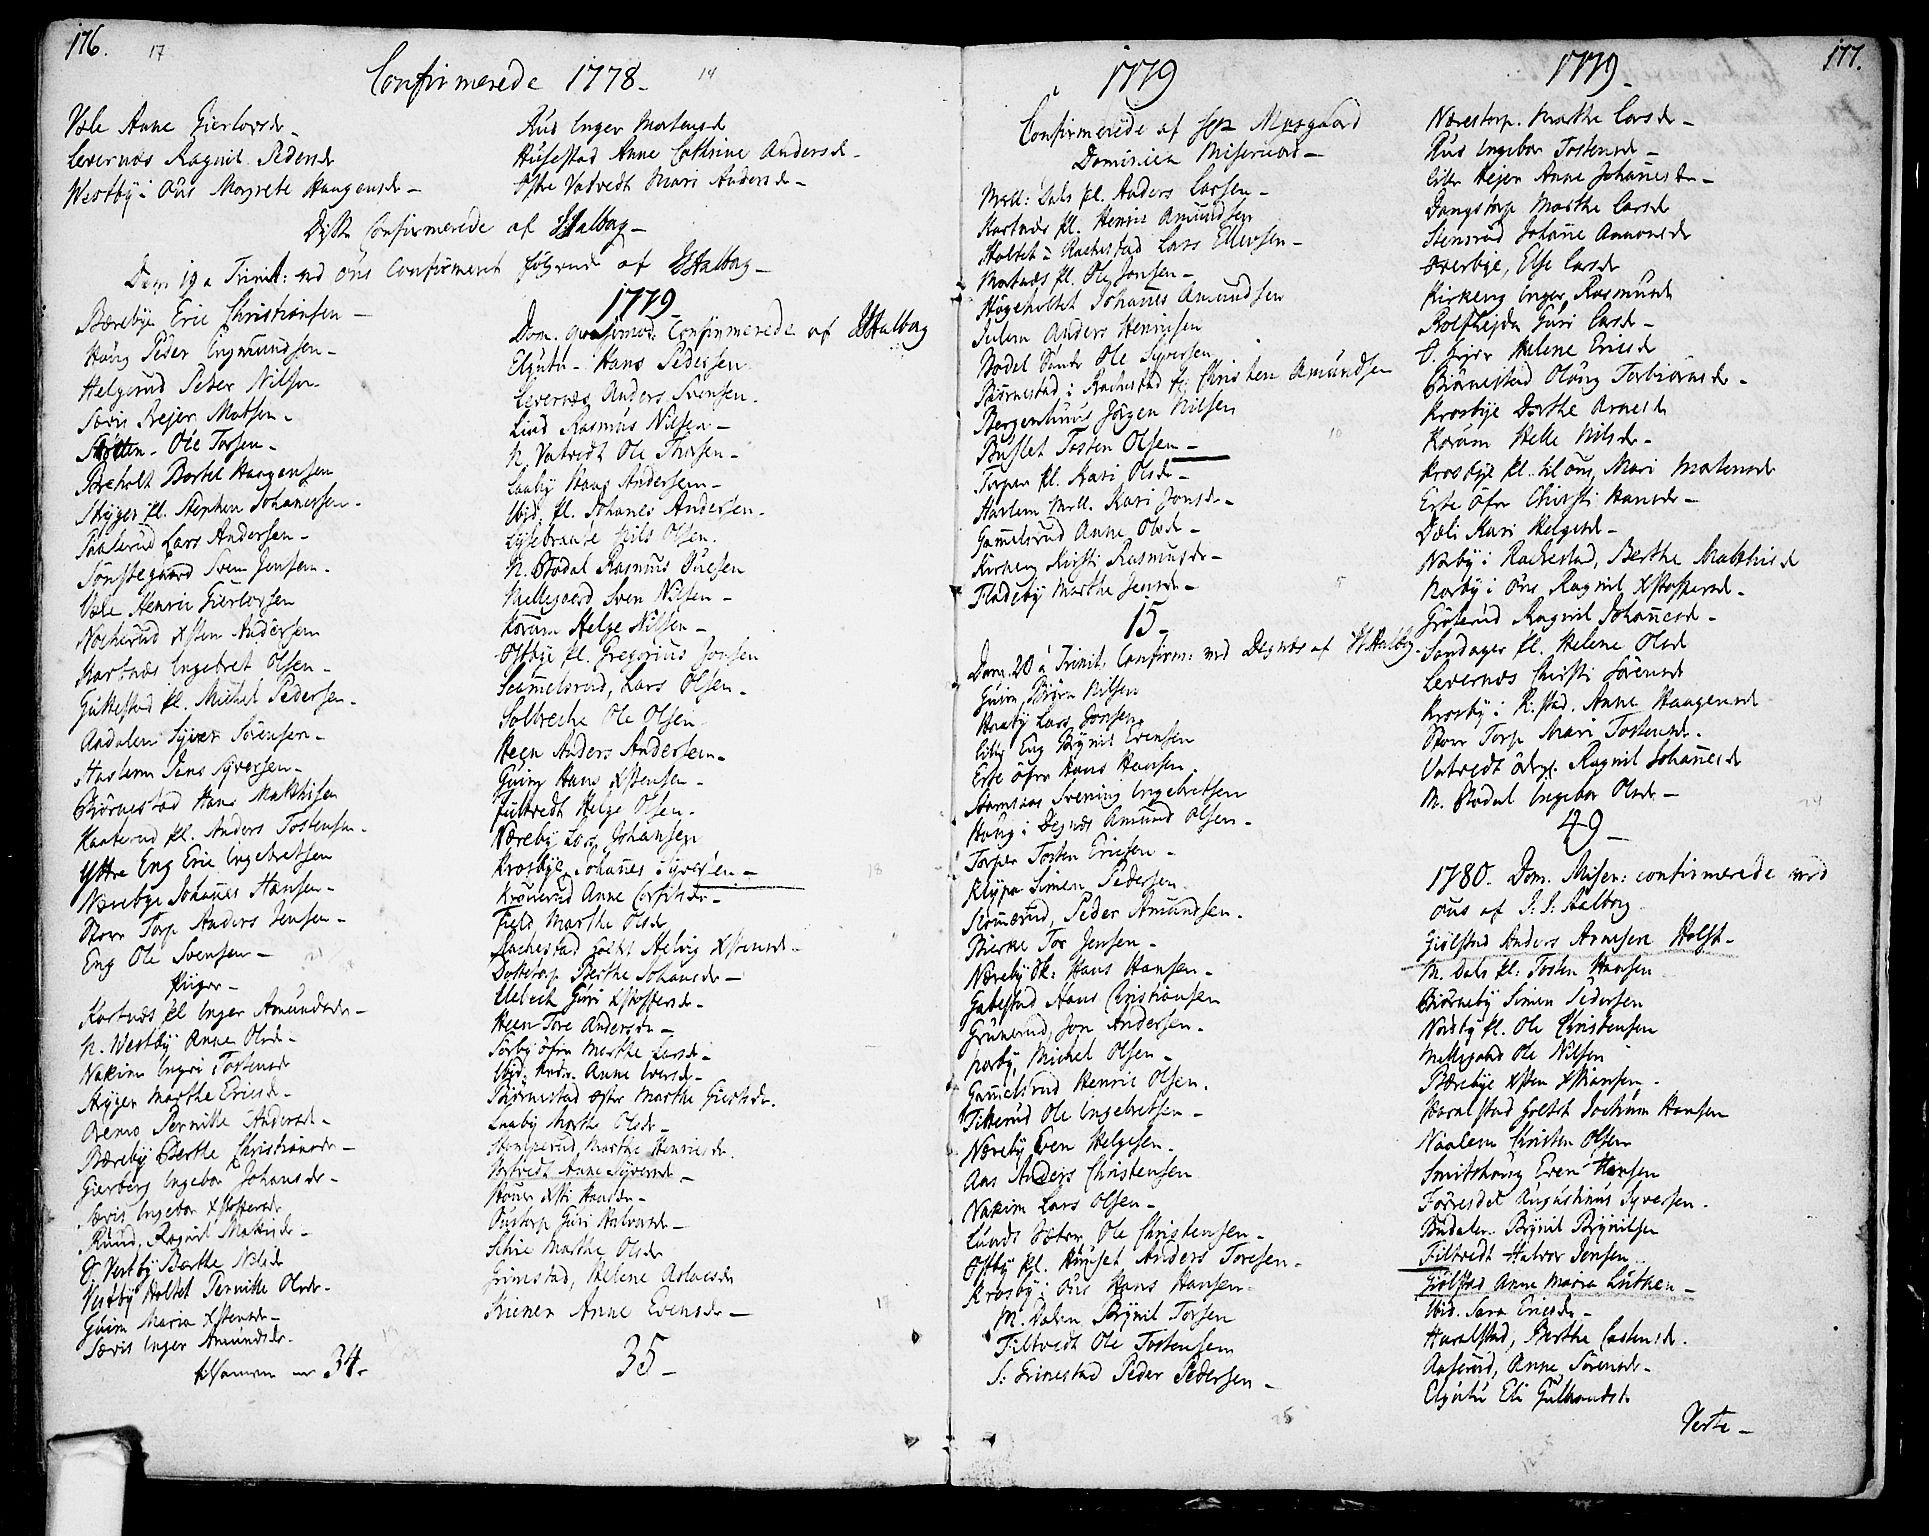 176.
17
Confirmerede 1778.
14
Væle Anne Gierlovsdr
Levernæs Ragnil Pedersdr
Westby i Ous Magrete Haagensdr
Aus Inger Mortensdr
Husestad Anne Cathrine Andersdr
Østre Vatvedt Mari Andersdr
Disse Confirmerede af Aalborg
Dom 19 a Trinit: ved Ous Confirmeret følgende af Aalborg
Bærebye Eric Christiansen
Houg Peder Engmundsen
Helgerud Peter Nilsen
Sævis Rejer Matsen
Skotten Ole Torsen
Boreholt Bertel Haagensen
Styger pl. Stephen Johanessen
Taalerud Lars Andersen
Tønstegaard Sven Jensen
Væle Henric Gierlovsen
Nocherud Xsten Andersen
Kortnæs Ingebret Olsen
Guttestad pl. Michel Pedersen
Aadalen Syver Sörensen
Haslerm Jens Syversen
Biørnestad Hans Matthisen
Kaaterud pl. Anders Tostensen
Yttre Eng Eric Ingebretsen
Nærebye Johanes Hansen
Store Torp Anders Jensen
Eng Ole Svensen
Piiger
Kortnæs pl Inger Amundsdr
N. Westby Anne Olsdr
Nakim Ingri Tostensdr
Styger Marthe Ericsdr
Pernille Andersdr
Bæreby Berthe Christiansdr
Gierberg Ingebor Johansdr
Sævis Ingebor Xstofersdr
Ruud, Ragnil Matisdr
Ø Vestby Berthe Nilsdr
Vestby Holtet Pernille Olsdr
Guim Maria Xstensdr
Sævis Inger Amundsdr
tilsamen er 34
1779
Dom. quasimod: Confirmerede af Aalborg
Elgutu Hans Pedersen
Levernæs Anders Svensen
Liud Rasmus Nilsen
N. Vatvedt Ole Thorsen
Laaby Hans Andersen
Ibid: pl. Johanes Andersen
Lysebraate Nils Olsen
N. Stodal Rasmus Ouesen
Mellegaard Sven Nilsen
Korum Helge Nilsen
Østbye pl. Gregorius Jonsen
Sæmelsrud, Lars Olsen
Solbreche Ole Olsen
Heen Anders Andersen
Guim Hans Xstensen
Fultvedt Helge Olsen
Næreby Lars Johansen
Krosbye Johanes Syversen
18
Krönerud Anne
Field Marthe Olsdr
Rachestad Holtet Helvig Xstensdr
Dottetorp Berthe Johansdr
Uebech Guri Xstoffersdr
Heen Tore Andersdr
Sörby öfre Marthe Larsdr
Ibid. Anne Iversdr
Biørnestad øster Marthe Giertsdr
Laaby Marthe Olsdr
Stemperud, Marthe Henricsdr
Vatvedt Anne Syversdr
Hansdr
Oustorp Guri Halvorsdr
Schie Marthe Olsdr
Grimstad, Helene Asloesdr
Skiener Anne Evensdr
17
35
1779
Confirmerede af Sgr Mosgaard
Dominica Misericord
Mell: Dals pl. Anders Larsen
Kortnæs pl. Henric Amundsen
Holtet i Rachestad Lars Ellevsen
Mortnæs pl. Ole Jonsen
Høgeholtet Johanes Amundsen
Julem Anders Henricsen
Bodel Søndr Ole Syversen
Biørnestad i Rachestad pl. Christen Amundsen
Bergenhuus Jørgen Nilsen
Buslet Tosten Olsen
10
Torper pl. Kari Olsdr
Harlem Mell. Kari Jonsdr
Gamelsrud Anne Olsdr
Kirkeng Kirsti Rasmusdr
5
Fladeby Marthe Jensdr
15
Dom. 20 à Trinit: Confirm: ved Degnæs af Aalborg
Guim, Biörn Nilsen
Haaby Lars Jonsen
Eng Brynil Evensen
Erte öfre Hans Hansen
Stamnæs Svening Ingebretsen
Houg i Degnæs Amund Olsen
Torper Tosten Ericsen
Klypa Simen Pedersen
Romerud, Peder Amundsen
Bierke Tor Jensen
Næreby Ök: Hans Hansen
Gabestad Hans Christiansen
Grimerud, Jon Andersen
Norby, Michel Olsen
Gamelsrud Henric Olsen
Titterud Ole Ingebretsen
Næreby Even Helgesen
Aas Anders Christensen
Nakim Lars Olsen
Lunds Sæter, Ole Christensen
Østby pl. Huuset Anders Toresen
Krosby i Ous Hans Hansen
M. Dalen Brynil Torsen
Filtvedt Ole Tostensen
S: Grinestad Peder Pedersen
25
1779
177.
Nærestorp. Marthe Larsdr
Rud Ingebor Tostensdr
Anne Johanesdr
Dangstorp Marthe Larsdr
Stensrud Johane Amonsdr
Sverbye, Else Larsdr
Kirkeng Inger Rasmusdr
Guri Larsdr
Helene Ericsdr
Biörnestad Oloug Torbiörnsdr
Krosbye Dorthe Arnesdr
Korum Helle Nilsdr
Krosbye pl. til Ous, Mari Mortensdr
Erte öfre Christi Hansdr
Dæli Kari Helgesdr
Norby i Rachestad, Berthe Matthisdr
Norby i Ous Ragnil Xstoffersdr
Gröterud Ragnil Johanesdr
Sandager pl. Helene Olsdr
Levernæs Christi Sörensdr
Krosby i R:stad. Anne Haagensdr
Store Torp Mari Tostensdr
Vatvedt Ragnil Johanesdr
N. Stodal Ingebor Olsdr
24
49
1780. Dom. Miser: confirmerede ved
Ous af J: J: Aalborg
Giölstad Anders Arnesen Holst
M. Dals pl: Tosten Hansen
Biörneby Simen Pedersen
Nordby pl. Ole Christensen
Mellegaard Ole Nilsen
Bærebye Xsten Xstiansen
Haralstad Holtet Jochum Hansen
Naalem Christen Olsen
Smitshoug Even Hansen
Förresdal Augustinus Syversen
Brudalen Brynil Brynilsen
Filtvedt Halvor Jensen
Giölstad Anne Maria Lutken
Ibid. Sara Ericsdr
Haralstad, Berthe Carstensdr
Aaserud, Anne Sörensdr
Elgutu Eli Gulbrandsdr
Verte